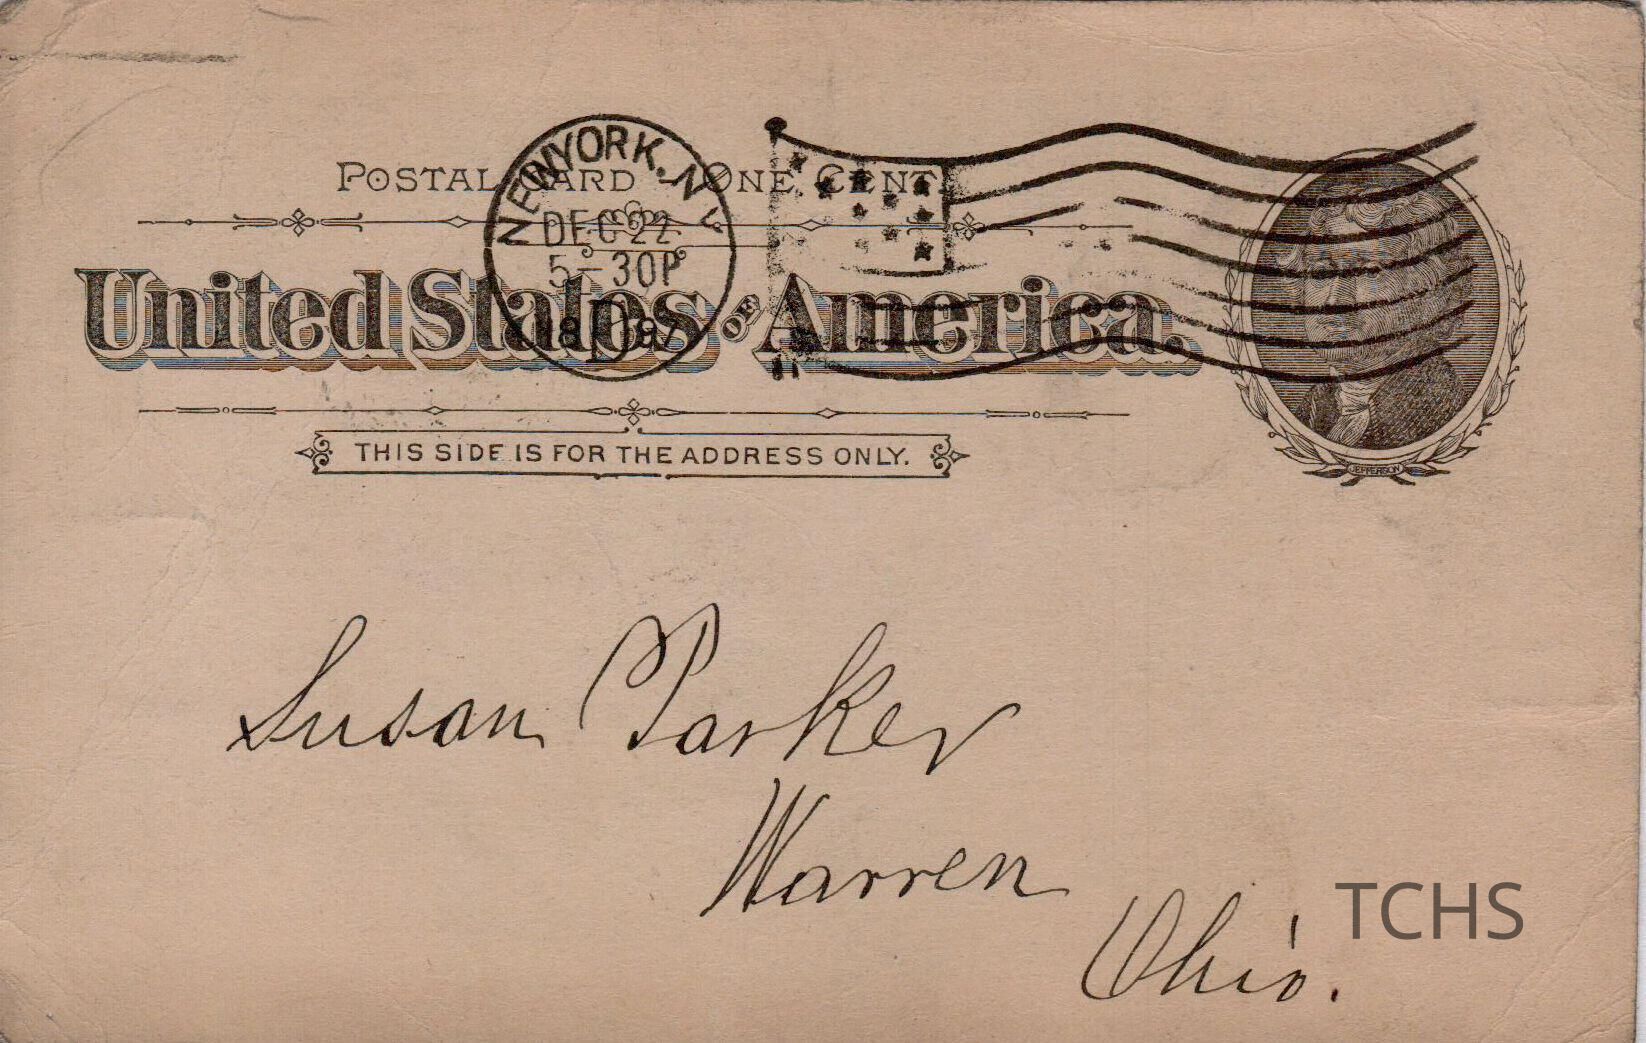 POSTAL CARD – ONE CENT.
NEW YORK, N.Y.
DEC 22
5-30P
D
1897
United States OF America.
JEFFERSON
THIS SIDE IS FOR THE ADDRESS ONLY.
Susan Parker
Warren
Ohio.
TCHS